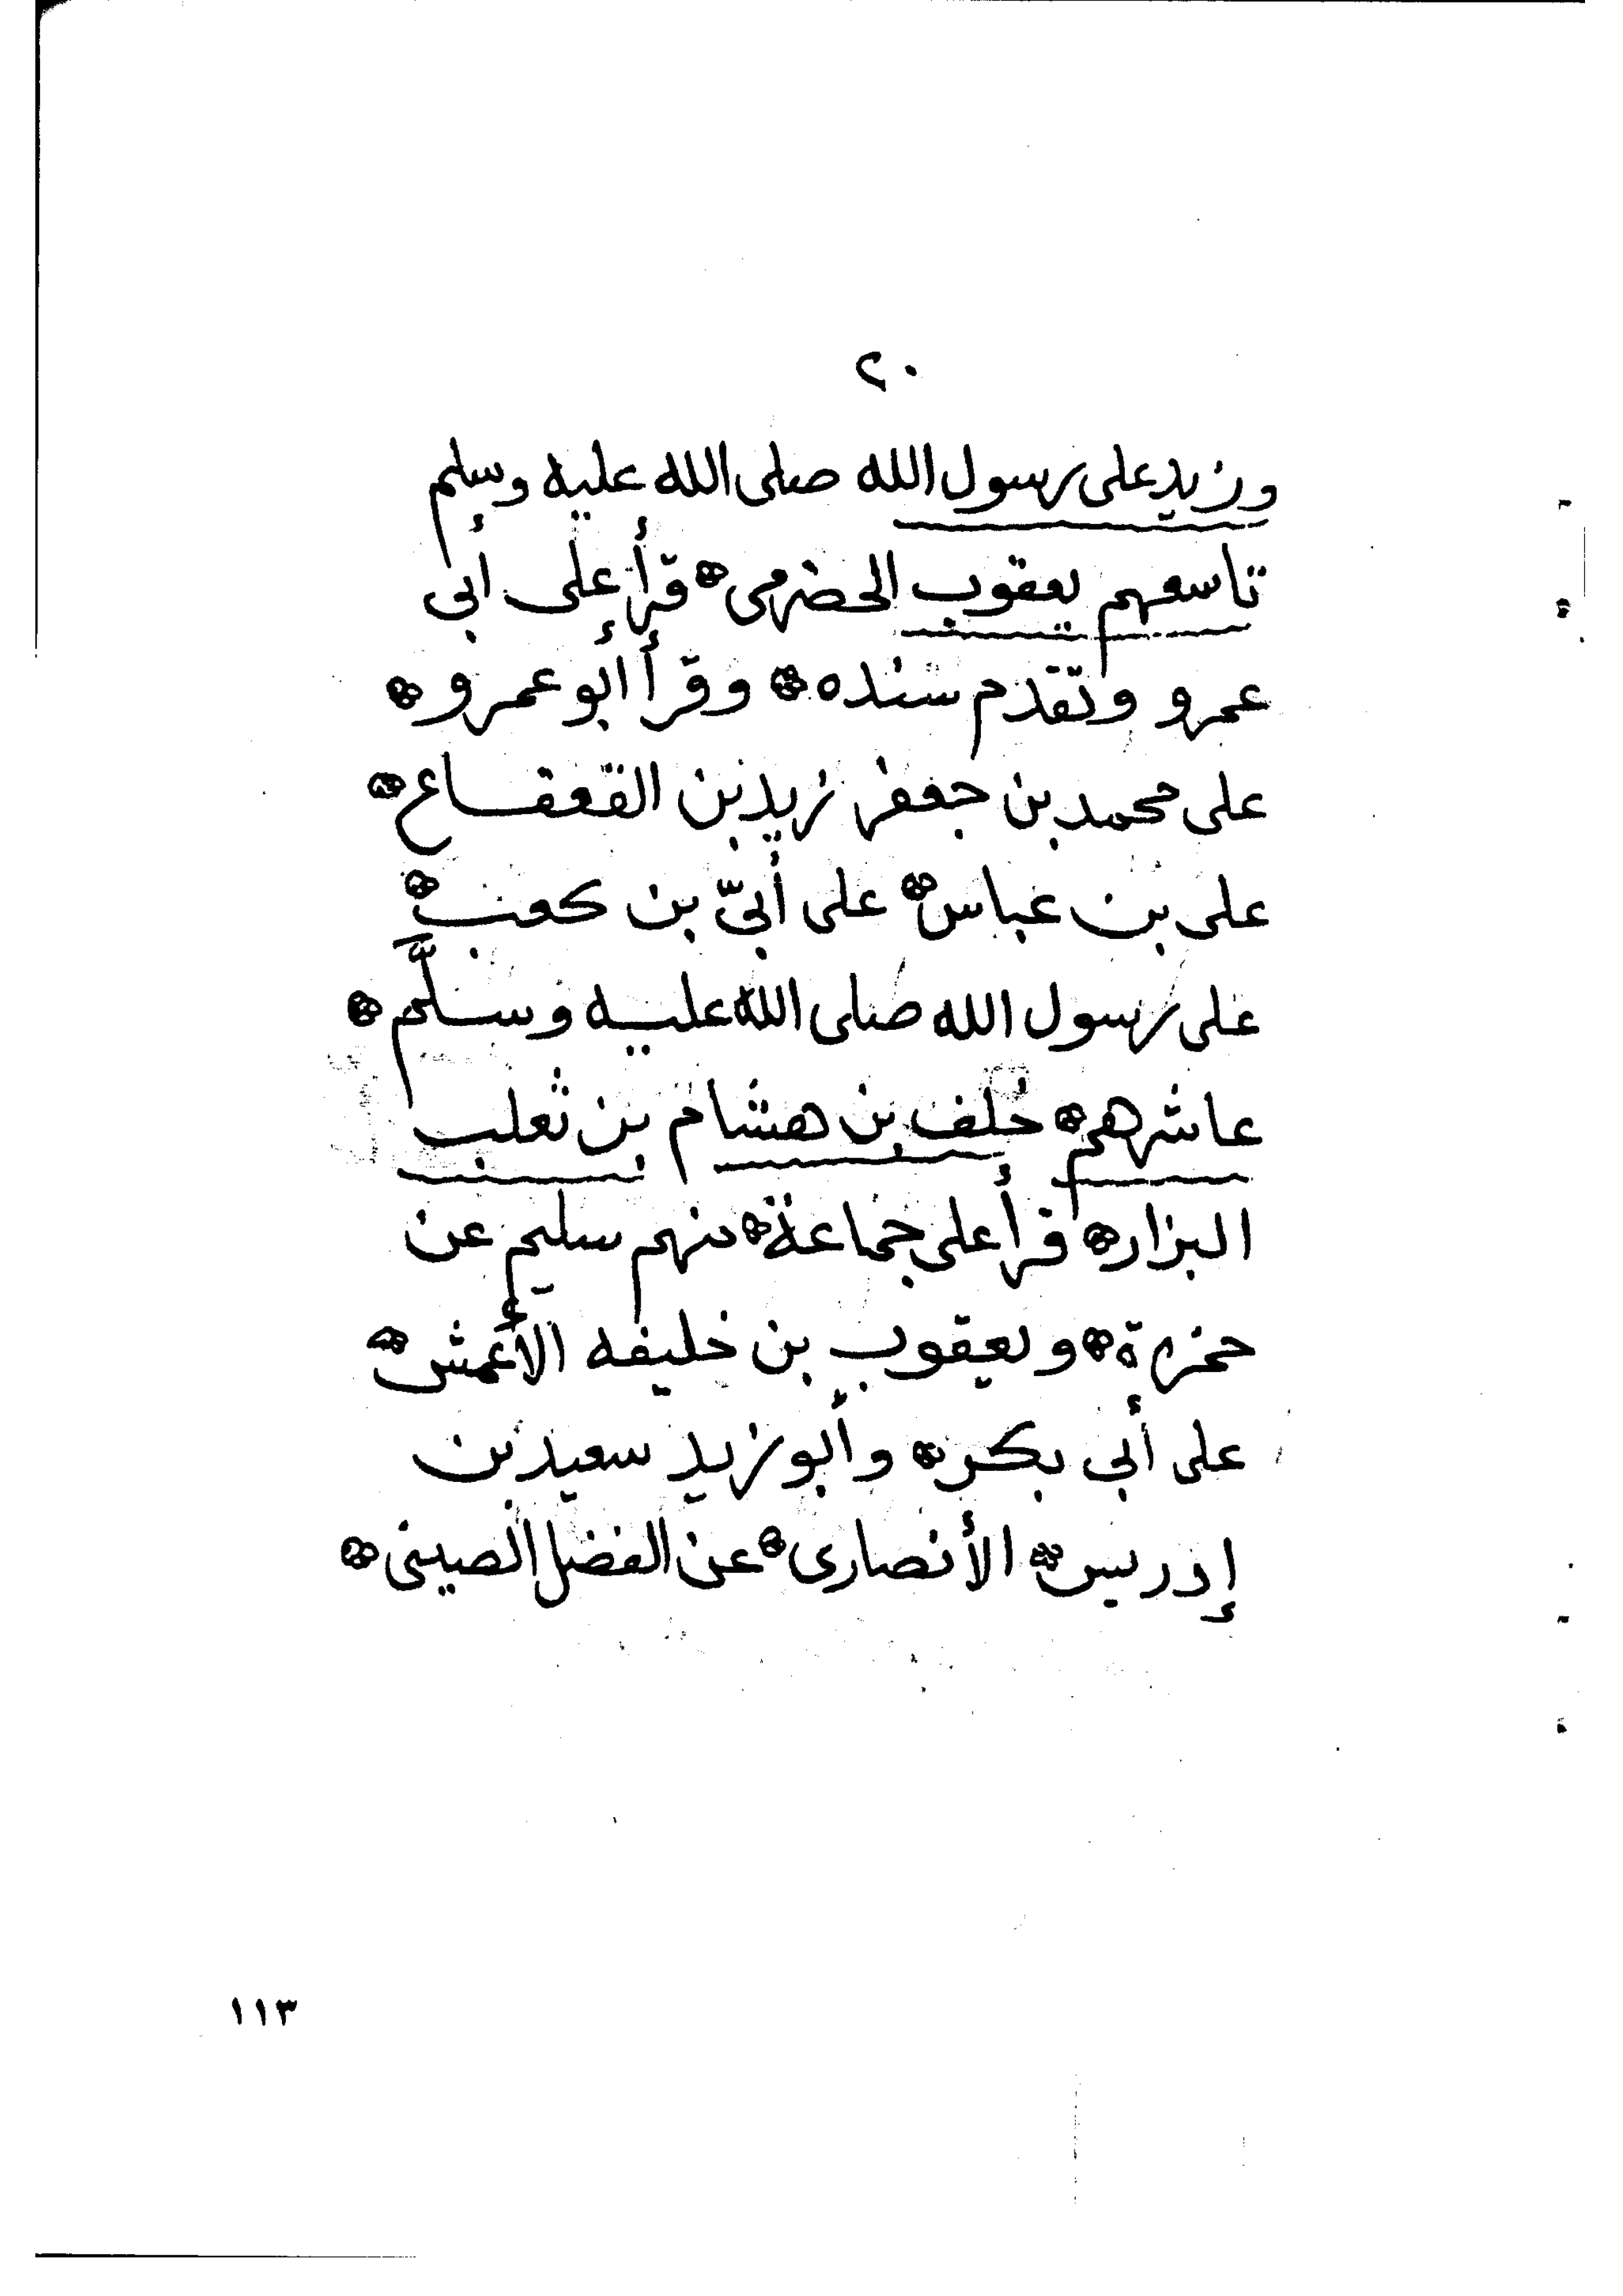 ٢٠
وزيد على رسول الله صلى الله عليه وسلم
تاسعهم يعقوب الحضرمى قرأ على أبى
عمرو وتقدم سنده وقرأ أبو عمرو
على محمد بن جعفر زيد بن القعقاع
على بن عباس على أبىّ بن كعب
على رسول الله صلى الله عليه وسلَّم
عاشرهم خلف بن هشام بن ثعلب
البزار قرأ على جماعة منهم سليم عن
حمزة ويعقوب بن خليفه الأعمش
على أبى بكر وأبو زيد سعيد بن
إدريس الأنصارى عن الفضل الصينى
١١٣